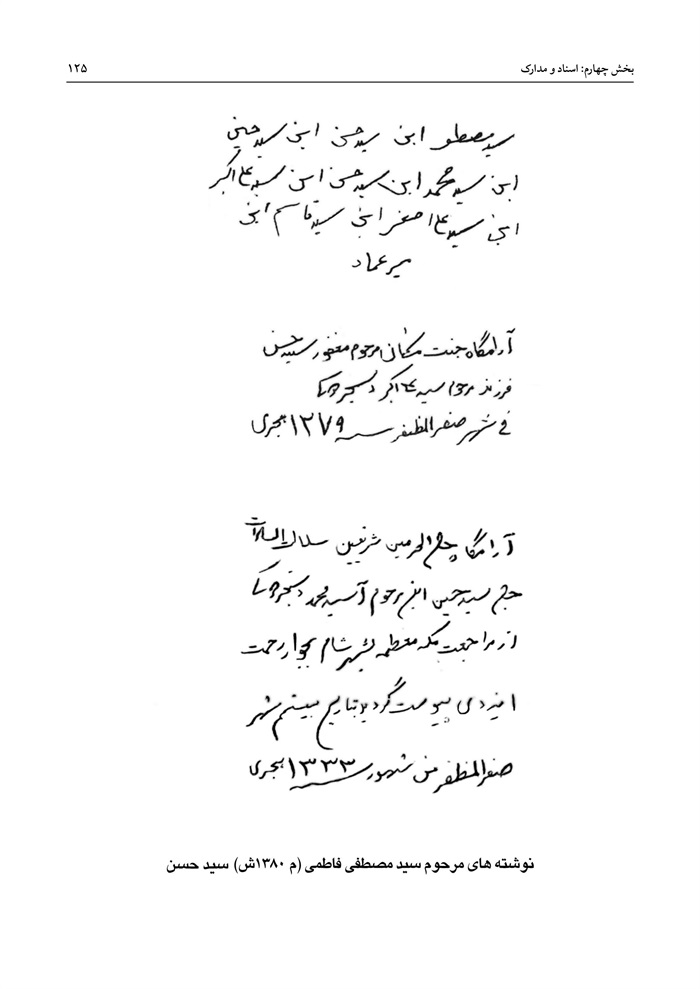 بخش چهارم: اسناد و مدارک
۱۲۵
سید مصطفی ابن سید حسن ابن سید حسین
ابن سید محمد ابن سید حسن ابن سید علی اکبر
ابن سید علی اصغر ابن سید قاسم ابن
میر عماد
آرامگاه جنت مکان مرحوم مغفور سید حسن
فرزند مرحوم سید علی اکبر
فی شهر صفر المظفر سنه ۱۲۷۹ هجری
آرامگا حاج الحرمین شریفین سلالة السادات
حاج سید حسین ابن مرحوم آ سید محمد
از مراجعت مکه معظمه بشهر شام بجوار رحمت
ایزدی پیوست گردید بتاریخ بیستم شهر
صفر المظفر من شهور سنه ۱۳۳۳ هجری
نوشته های مرحوم سید مصطفی فاطمی (م ۱۳۸۰ش) سید حسن